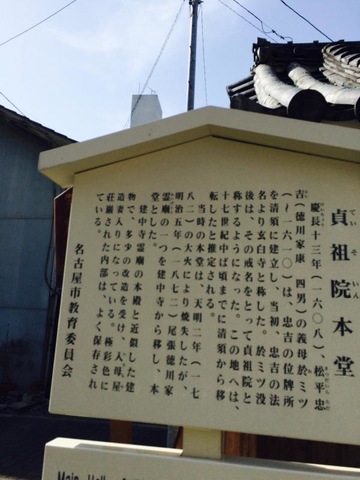 貞祖院本堂
慶長十三年(一六〇八)、松平忠
吉(徳川家康 四男)の義母於ミツ
(〜一六一〇)は、忠吉の位牌所
を清須に建立し、当初、忠吉の法
名より玄白寺と称した。於ミツ没
後は、その戒名をとって貞祖院と
称するようになった。この地へは、
十七世紀中頃までに清須から移
転したと推定される。
当時の本堂は、天明二年(一七
八二)の大火により焼失したが、
明治五年(一八七二)尾張徳川家
霊廟の一つを建中寺から移し、本
堂とした。
建中寺霊廟の本殿と近似した建
物で、多少の改造を受け、入母屋
造妻入りになっている。極彩色に
荘厳された内部は、よく保存され
ている。
名古屋市教育委員会
Main Hall